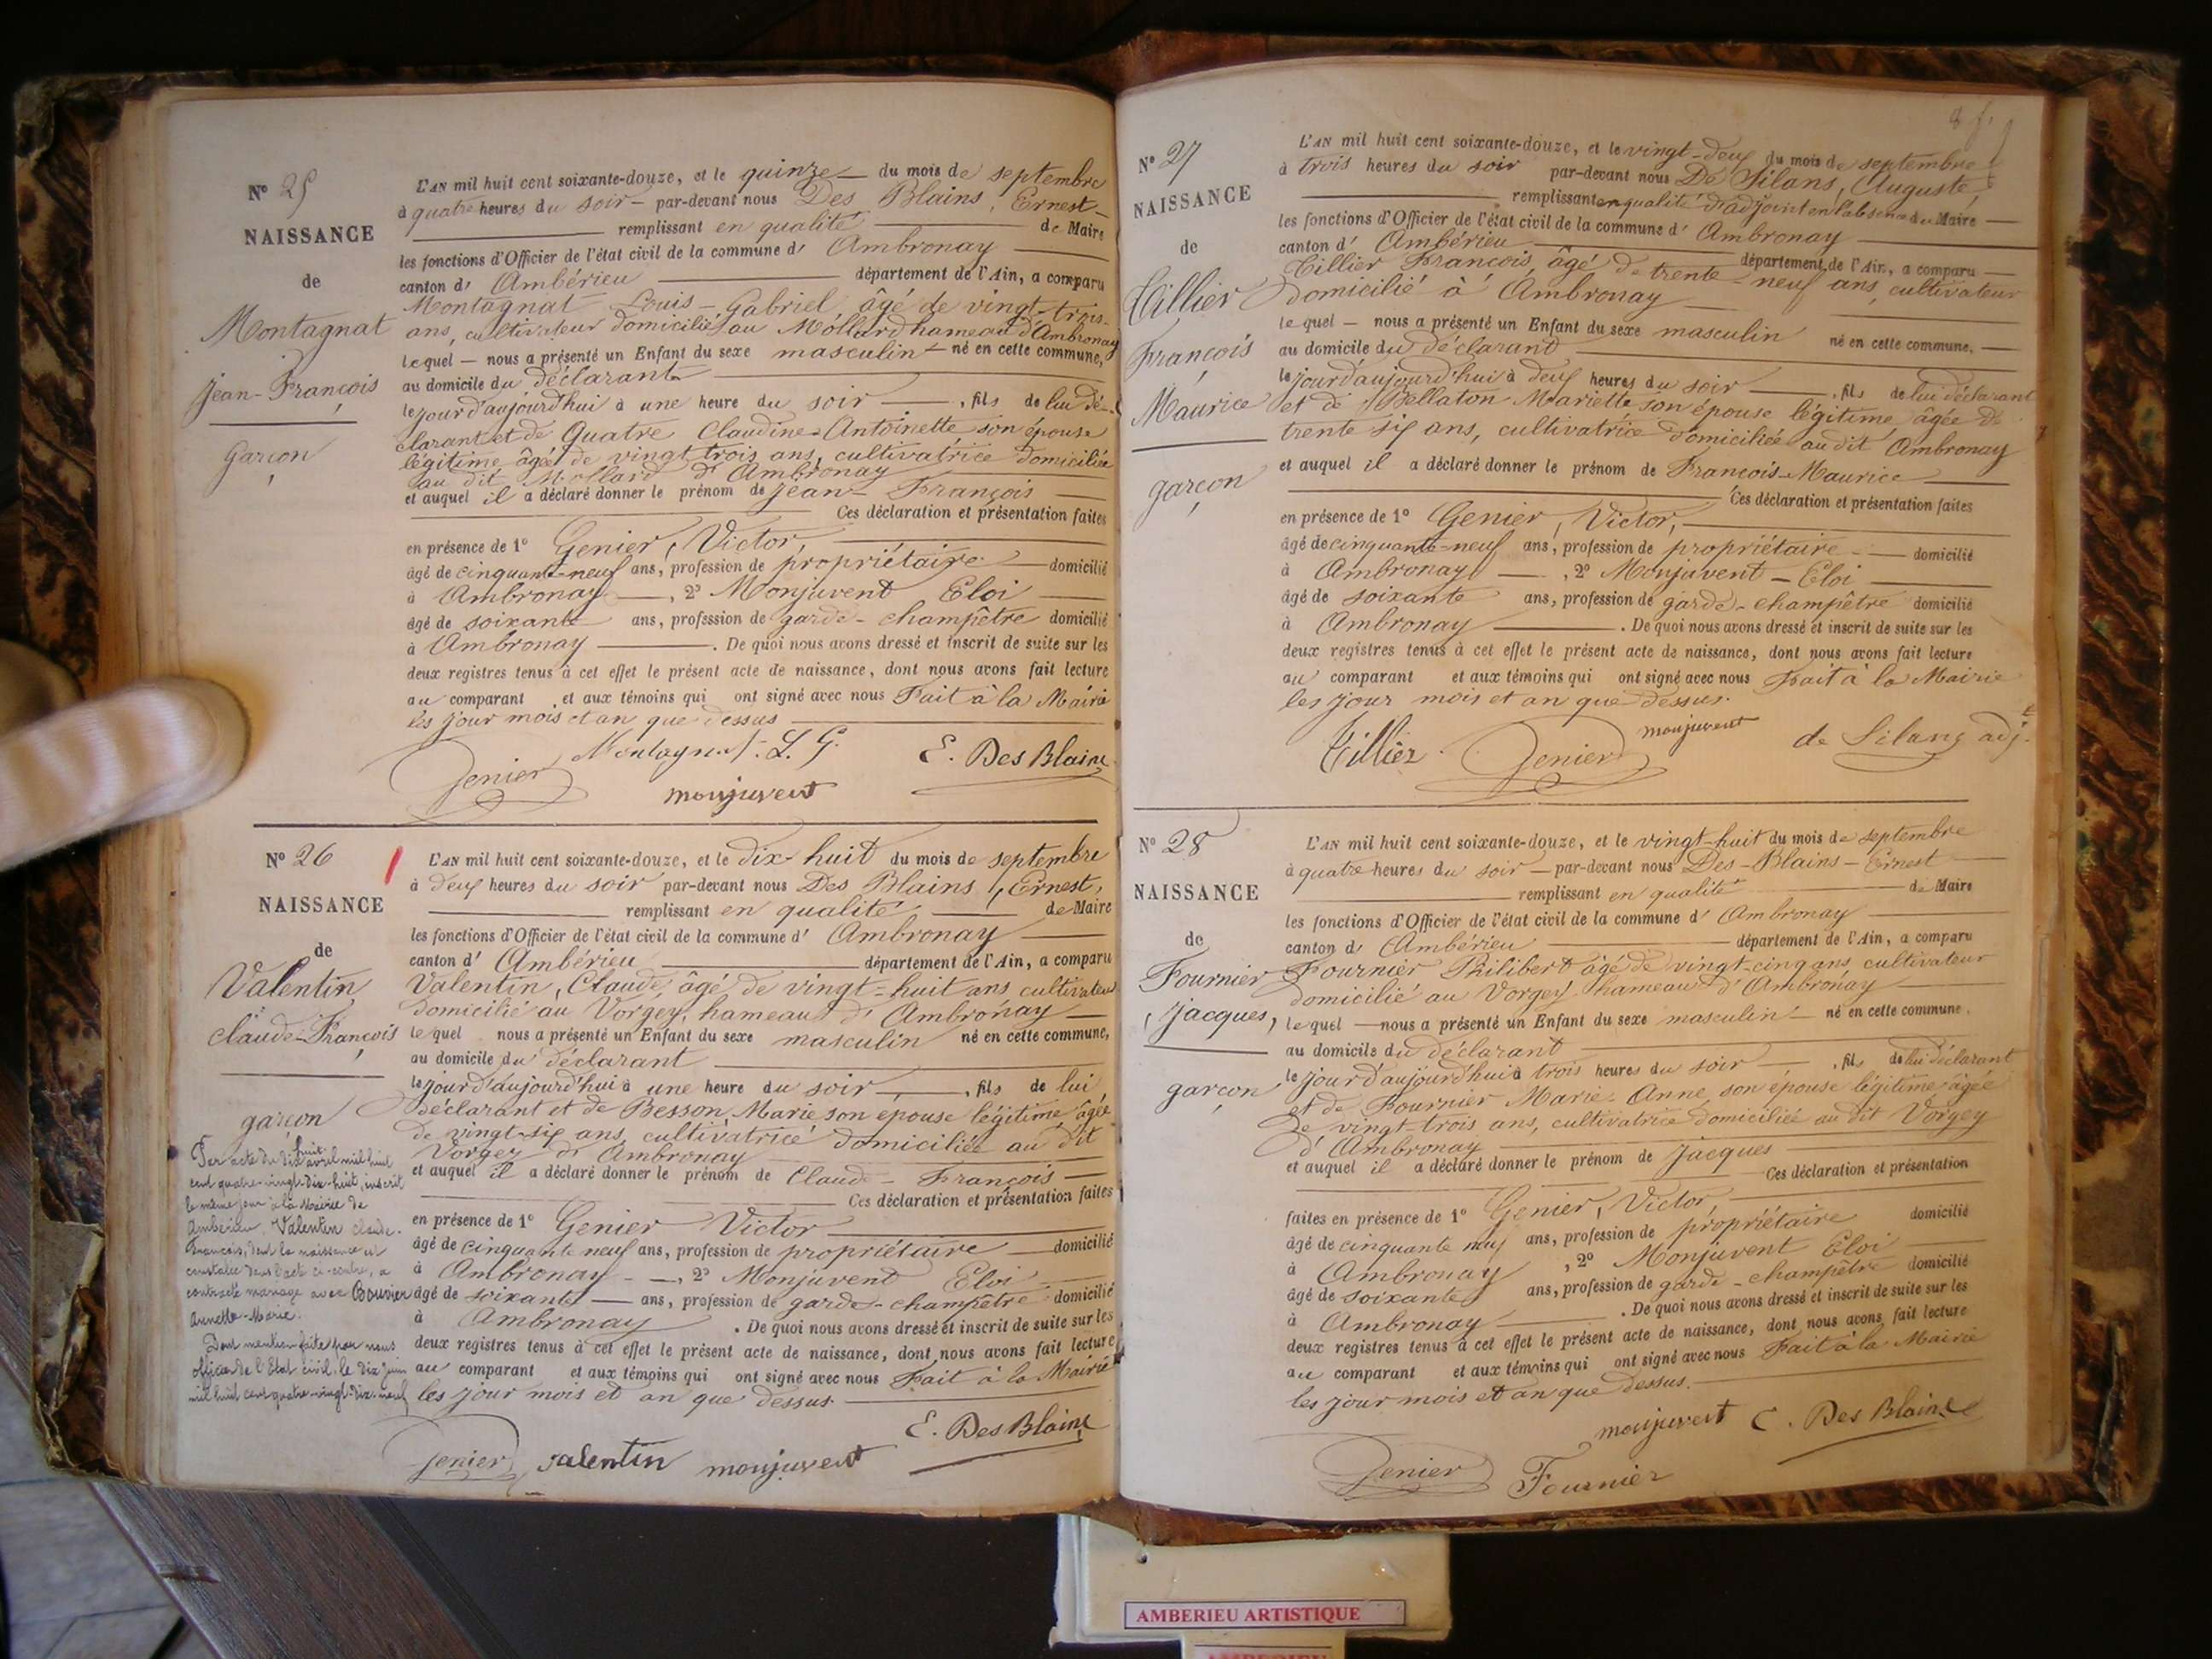 N° 25
NAISSANCE
de
Montagnat
Jean-François
garçon
L'AN mil huit cent soixante-douze, et le quinze du mois de septembre
à quatre heures du soir par-devant nous Des Blains, Ernest
remplissant en qualité de Maire
les fonctions d'Officier de l'état civil de la commune d' Ambronay
canton d' Ambérieu département de l'Ain, a comparu
Montagnat Louis-Gabriel âgé de vingt-trois
ans, cultivateur domicilié au Mollard hameau d'Ambronay
lequel nous a présenté un Enfant du sexe masculin né en cette commune,
au domicile du déclarant
le jour d'aujourd'hui à une heure du soir, fils de lui dé-
clarant et de Quatre Claudine-Antoinette son épouse
légitime âgée de vingt trois ans, cultivatrice domiciliée
au dit Mollard d'Ambronay
et auquel il a déclaré donner le prénom de Jean-François
Ces déclaration et présentation faites
en présence de 1° Genier, Victor,
âgé de cinquante-neuf ans, profession de propriétaire domicilié
à Ambronay, 2° Monjuvent Eloi
âgé de soixante ans, profession de garde-champêtre domicilié
à Ambronay. De quoi nous avons dressé et inscrit de suite sur les
deux registres tenus à cet effet le présent acte de naissance, dont nous avons fait lecture
au comparant et aux témoins qui ont signé avec nous Fait à la Mairie
les jour mois et an que dessus
Montagnat L. G. E. Des Blains
Genier monjuvent
N° 26
NAISSANCE
de
Valentin
Claude-François
garçon
Par acte du dix huit avril mil huit
cent quatre-vingt-dix-huit, inscrit
le même jour à la Mairie de
Ambérieu, Valentin Claude-
François, dont la naissance est
constatée dans l'acte ci-contre, a
contracté mariage avec Bouvier
Annette-Marie.
Dont mention faite par nous
officier de l'Etat civil, le dix juin
mil huit cent quatre-vingt-dix-neuf
L'AN mil huit cent soixante-douze, et le dix-huit du mois de septembre
à deux heures du soir par-devant nous Des Blains, Ernest,
remplissant en qualité de Maire
les fonctions d'Officier de l'état civil de la commune d' Ambronay
canton d' Ambérieu département de l'Ain, a comparu
Valentin, Claude, âgé de vingt-huit ans cultivateur
domicilié au Vorgey, hameau d'Ambronay
lequel nous a présenté un Enfant du sexe masculin né en cette commune,
au domicile du déclarant
le jour d'aujourd'hui à une heure du soir, fils de lui
déclarant et de Besson Marie, son épouse légitime âgée
de vingt-six ans, cultivatrice domiciliée au dit
Vorgey d'Ambronay
et auquel il a déclaré donner le prénom de Claude-François
Ces déclaration et présentation faites
en présence de 1° Genier Victor
âgé de cinquante neuf ans, profession de propriétaire domicilié
à Ambronay, 2° Monjuvent Eloi
âgé de soixante ans, profession de garde-champêtre domicilié
à Ambronay. De quoi nous avons dressé et inscrit de suite sur les
deux registres tenus à cet effet le présent acte de naissance, dont nous avons fait lecture
au comparant et aux témoins qui ont signé avec nous Fait à la Mairie
les jour mois et an que dessus
E. Des Blains
Genier valentin monjuvent
N° 27
NAISSANCE
de
Tillier
François
Maurice
garçon
L'AN mil huit cent soixante-douze, et le vingt-deux du mois de septembre
à trois heures du soir par-devant nous De Silans, Auguste,
remplissant en qualité d'adjoint en l'absence du Maire
les fonctions d'Officier de l'état civil de la commune d' Ambronay
canton d' Ambérieu département de l'Ain, a comparu
Tillier François âgé de trente-neuf ans, cultivateur
domicilié à Ambronay
lequel nous a présenté un Enfant du sexe masculin né en cette commune,
au domicile du déclarant
le jour d'aujourd'hui à deux heures du soir, fils de lui déclarant
et de Mellaton Mariette son épouse légitime âgée de
trente six ans, cultivatrice domiciliée au dit Ambronay
et auquel il a déclaré donner le prénom de François-Maurice
Ces déclaration et présentation faites
en présence de 1° Genier, Victor,
âgé de cinquante-neuf ans, profession de propriétaire domicilié
à Ambronay, 2° Monjuvent-Eloi
âgé de soixante ans, profession de garde-champêtre domicilié
à Ambronay. De quoi nous avons dressé et inscrit de suite sur les
deux registres tenus à cet effet le présent acte de naissance, dont nous avons fait lecture
au comparant et aux témoins qui ont signé avec nous Fait à la Mairie
les jour mois et an que dessus.
Tillier Genier monjuvent de Silans adj.
N° 28
NAISSANCE
de
Fournier
Jacques,
garçon
L'AN mil huit cent soixante-douze, et le vingt-huit du mois de septembre
à quatre heures du soir par-devant nous Des-Blains-Ernest
remplissant en qualité de Maire
les fonctions d'Officier de l'état civil de la commune d' Ambronay
canton d' Ambérieu département de l'Ain, a comparu
Fournier Philibert âgé de vingt-cinq ans, cultivateur
domicilié au Vorgey hameau d'Ambronay
lequel nous a présenté un Enfant du sexe masculin né en cette commune,
au domicile du déclarant
le jour d'aujourd'hui à trois heures du soir, fils de lui déclarant
et de Fournier Marie-Anne, son épouse légitime âgée
de vingt trois ans, cultivatrice domiciliée au dit Vorgey
d'Ambronay
et auquel il a déclaré donner le prénom de Jacques
Ces déclaration et présentation
faites en présence de 1° Genier, Victor
âgé de cinquante neuf ans, profession de propriétaire domicilié
à Ambronay, 2° Monjuvent Eloi
âgé de soixante ans, profession de garde-champêtre domicilié
à Ambronay. De quoi nous avons dressé et inscrit de suite sur les
deux registres tenus à cet effet le présent acte de naissance, dont nous avons fait lecture
au comparant et aux témoins qui ont signé avec nous Fait à la Mairie
les jour mois et an que dessus.
monjuvent E. Des Blains
Genier Fournier
AMBERIEU ARTISTIQUE
AMBERIEU